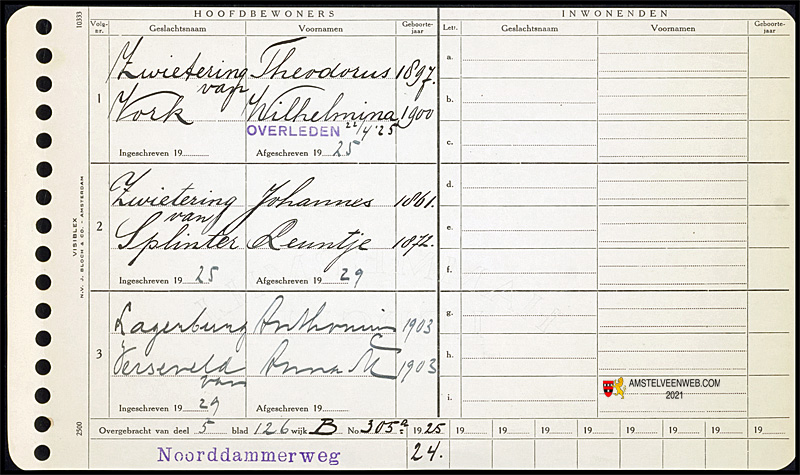 10333
HOOFDBEWONERS
INWONENDEN
Volg-nr. Geslachtsnaam Voornamen Geboorte-jaar Letr. Geslachtsnaam Voornamen Geboorte-jaar
1
Zwietering Theodorus 1897.
van
Vork Wilhelmina 1900
OVERLEDEN 22/4 '25
Ingeschreven 19 Afgeschreven 19 25
2
Zwietering Johannes 1861.
van
Splinter Leuntje 1872.
Ingeschreven 19 25 Afgeschreven 19 29
3
Lagerburg 1903
Verseveld Anna M 1903
van
Ingeschreven 19 29 Afgeschreven 19
a.
b.
c.
d.
e.
f.
g.
h.
i.
VISIBLEX
N.V. J. BLOCH & CO. - AMSTERDAM
2500
AMSTELVEENWEB.COM
2021
Overgebracht van deel 5 blad 126 wijk B No. 305a 1925 19 19 19 19 19 19 19 19
Noorddammerweg 24.